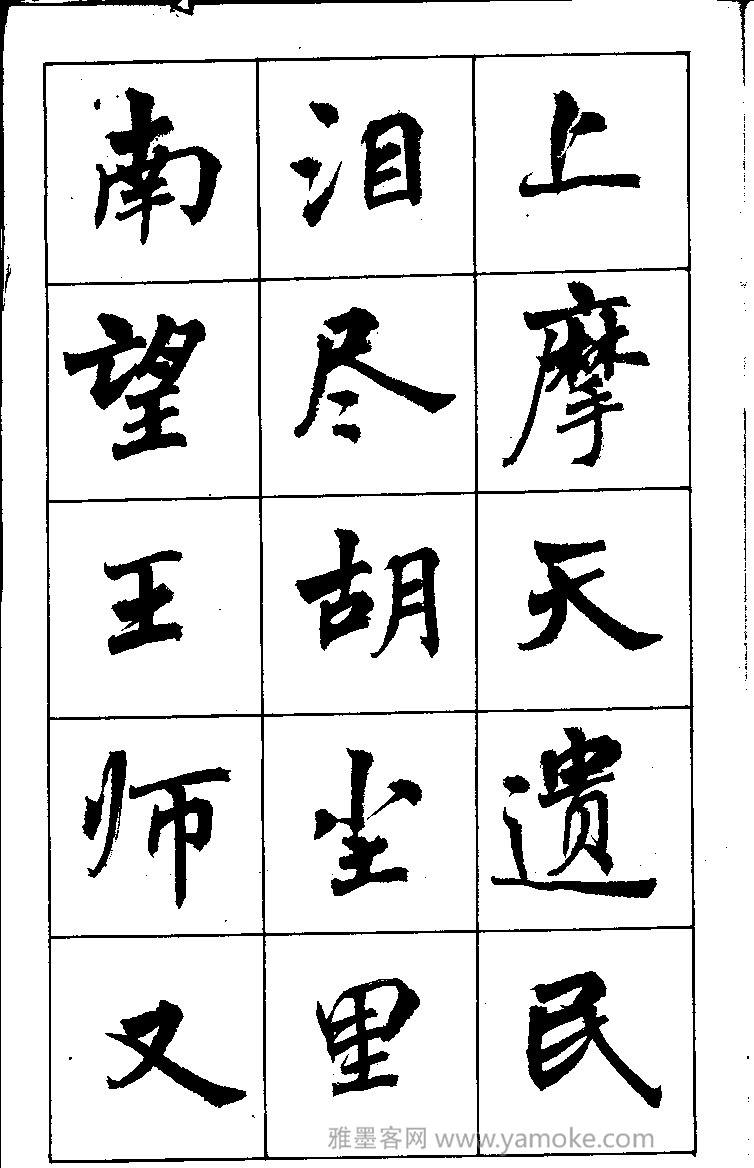 上摩天遗民
泪尽胡尘里
南望王师又
雅墨客网 www.yamoke.com